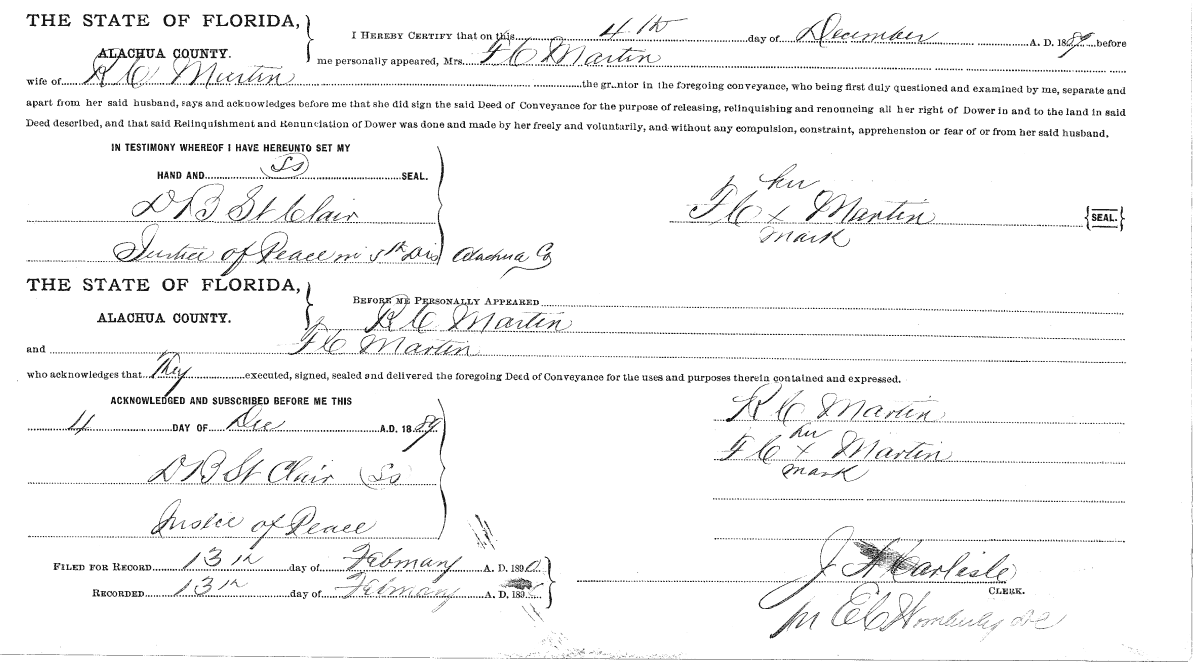 THE STATE OF FLORIDA,
ALACHUA COUNTY.
I HEREBY CERTIFY that on this 4th day of December A. D. 1889, before
me personally appeared, Mrs. F C Martin
wife of R C Martin the gr..ntor in the foregoing conveyance, who being first duly questioned and examined by me, separate and
apart from her said husband, says and acknowledges before me that she did sign the said Deed of Conveyance for the purpose of releasing, relinquishing and renouncing all her right of Dower in and to the land in said
Deed described, and that said Relinquishment and Renunciation of Dower was done and made by her freely and voluntarily, and without any compulsion, constraint, apprehension or fear of or from her said husband.
IN TESTIMONY WHEREOF I HAVE HEREUNTO SET MY
HAND AND SEAL.
D B St Clair
Justice of Peace in 5th Dis Alachua Co
her
F C x Martin {SEAL.}
mark
THE STATE OF FLORIDA,
ALACHUA COUNTY.
BEFORE ME PERSONALLY APPEARED
R C Martin
and F C Martin
who acknowledges that They executed, signed, sealed and delivered the foregoing Deed of Conveyance for the uses and purposes therein contained and expressed.
ACKNOWLEDGED AND SUBSCRIBED BEFORE ME THIS
4 DAY OF Dec A.D. 1889
D B St Clair
Justice of Peace
R C Martin
her
F C x Martin
mark
FILED FOR RECORD 13th day of February A. D. 1890
RECORDED 13th day of February A. D. 189
J A Carlisle
CLERK.
E C DC